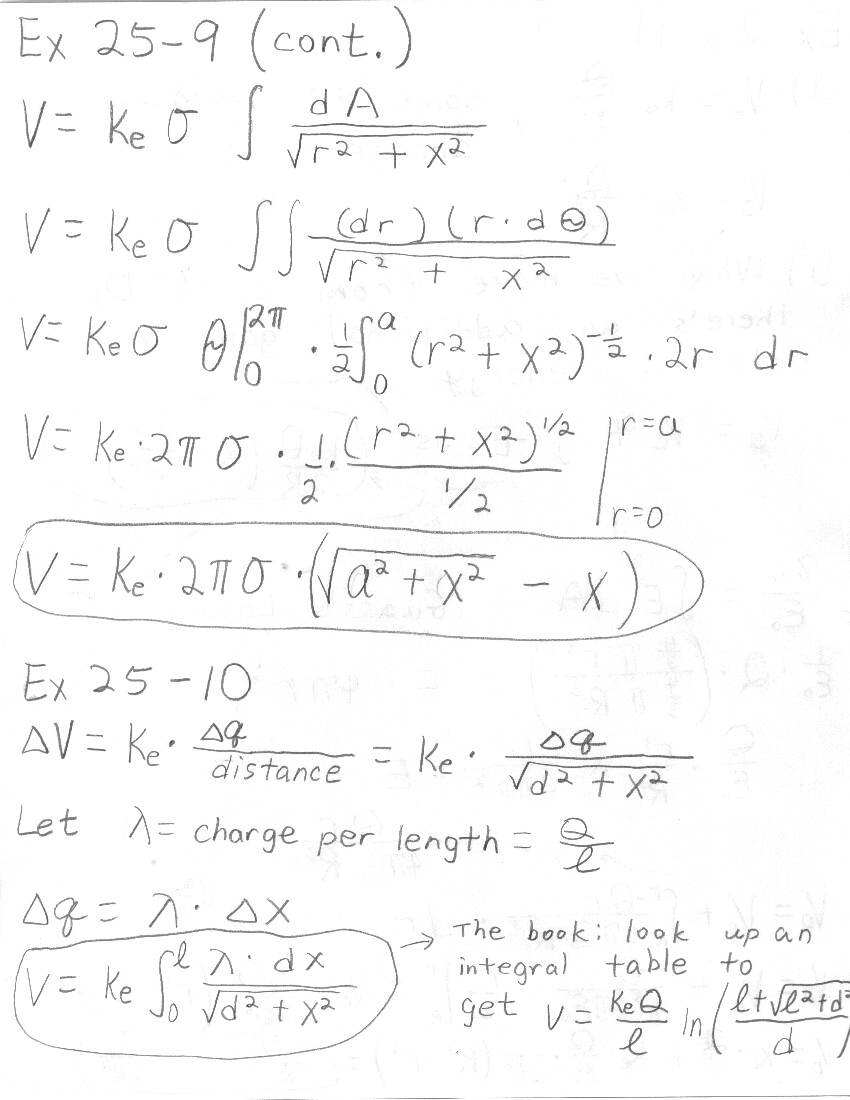 Ex 25-9 (cont.)
V = ke σ ∫ dA / √(r² + x²)
V = ke σ ∫∫ (dr)(r·dθ) / √(r² + x²)
V = ke σ θ|₀^2π · ½ ∫₀^a (r² + x²)^(-½) · 2r dr
V = ke · 2π σ · ½ · (r² + x²)^(1/2) / (1/2) | r=a r=0
V = ke · 2π σ · (√(a² + x²) - x)
Ex 25-10
ΔV = ke · Δq / distance = ke · Δq / √(d² + x²)
Let λ = charge per length = Q/ℓ
Δq = λ · Δx
V = ke ∫₀^ℓ λ · dx / √(d² + x²)
→ The book: look up an
integral table to
get V = keQ/ℓ ln((ℓ+√(ℓ²+d²))/d)